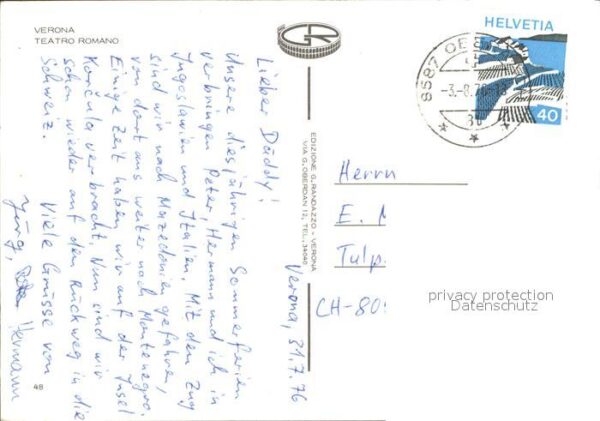 VERONA
TEATRO ROMANO
GR
HELVETIA
40
8587 OBE
-3.-8.76-18
Verona, 31.7.76
Lieber Daddy!
Unsere diesjährigen Sommerferien
verbringen Peter, Hermann und ich in
Jugoslawien und Italien. Mit dem Zug
sind wir nach Mazedonien gefahren,
von dort aus weiter nach Montenegro.
Einige Zeit haben wir auf der Insel
Korčula verbracht. Nun sind wir
schon wieder auf dem Rückweg in die
Schweiz.
Viele Grüsse von
Jürg, Hermann
EDIZIONE G. RANDAZZO - VERONA
VIA G. OBERDAN 12, TEL. 34040
Herrn
E. M
Tulp.
CH-80
privacy protection
Datenschutz
48